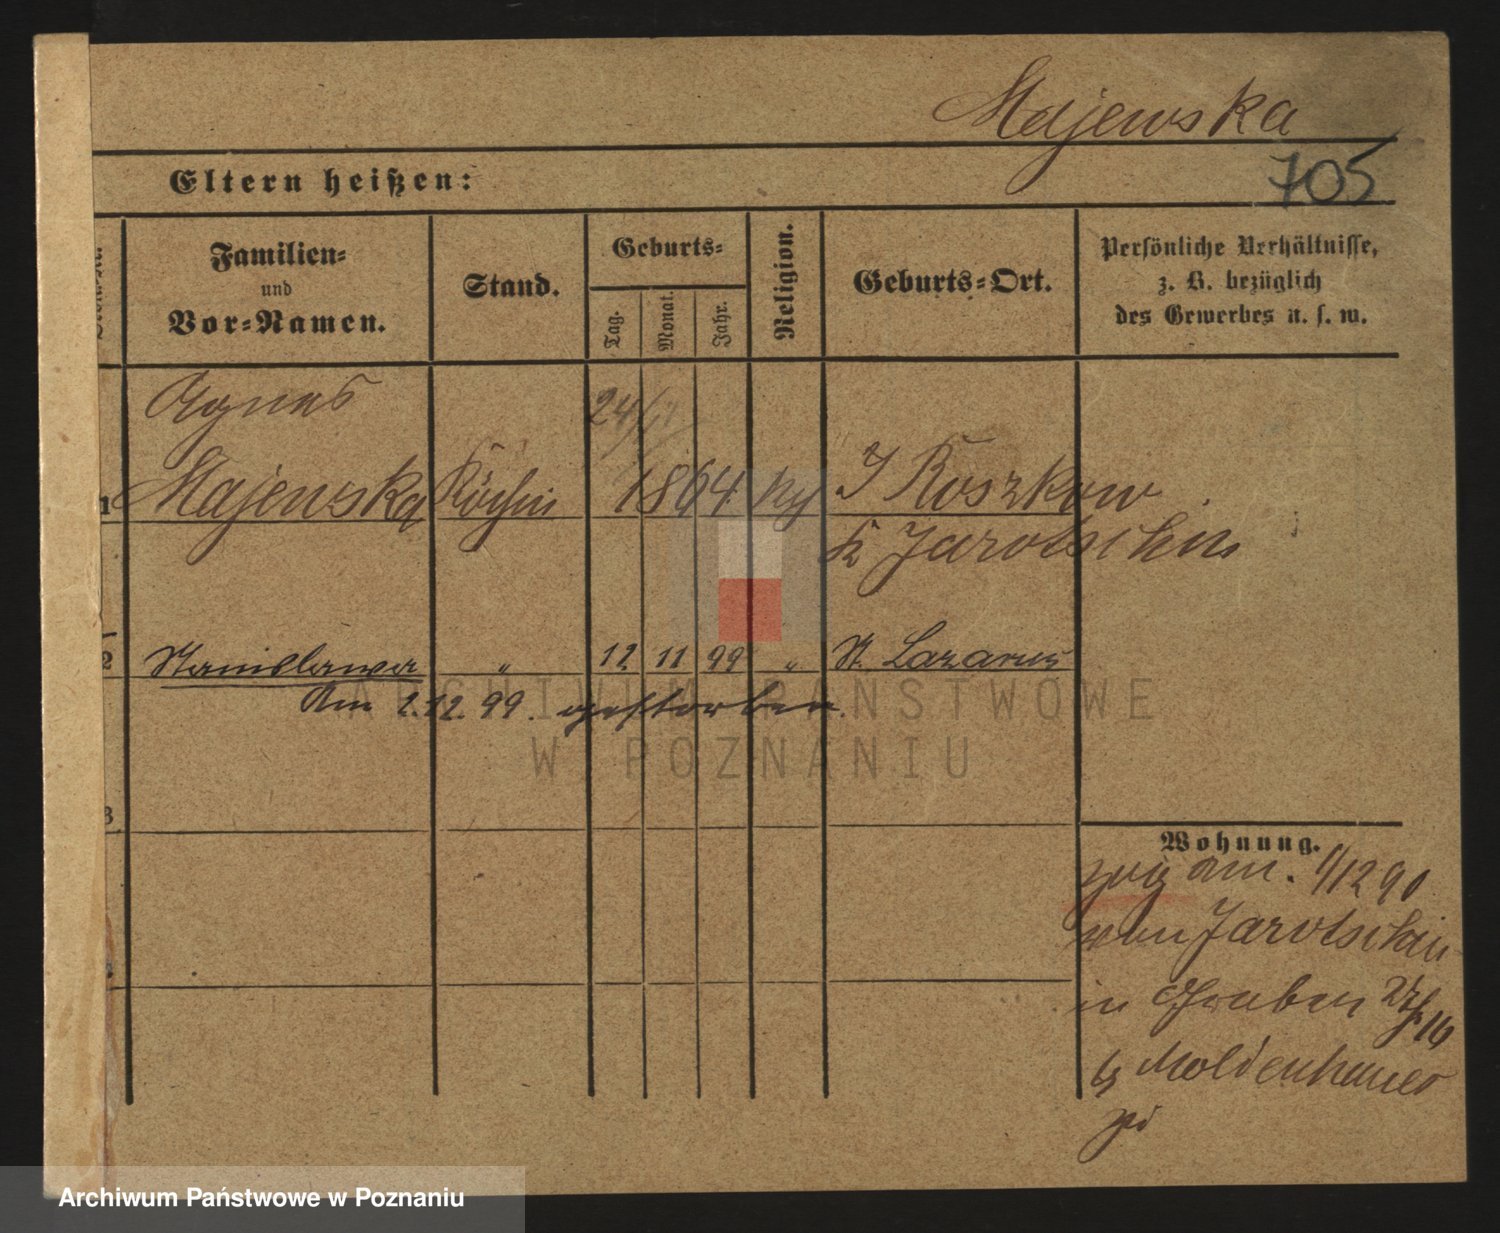 Majewska
705
Eltern heißen:
Familien=
und
Vor=Namen.
Stand.
Geburts=
Tag.
Monat.
Jahr.
Religion.
Geburts=Ort.
Persönliche Verhältnisse,
z. B. bezüglich
des Gewerbes u. s. w.
Agnes
24/
1 Majewska Köchin 1864 J Roszkow
Jarotschin
2 Stanislawa " 12 11 99 " St. Lazarus
Am 2.12.99. gestorben.
3
Wohnung.
zug am. 1/12 90
von Jarotschin
in Graben
Moldenhauer
ARCHIWUM PAŃSTWOWE
W POZNANIU
Archiwum Państwowe w Poznaniu